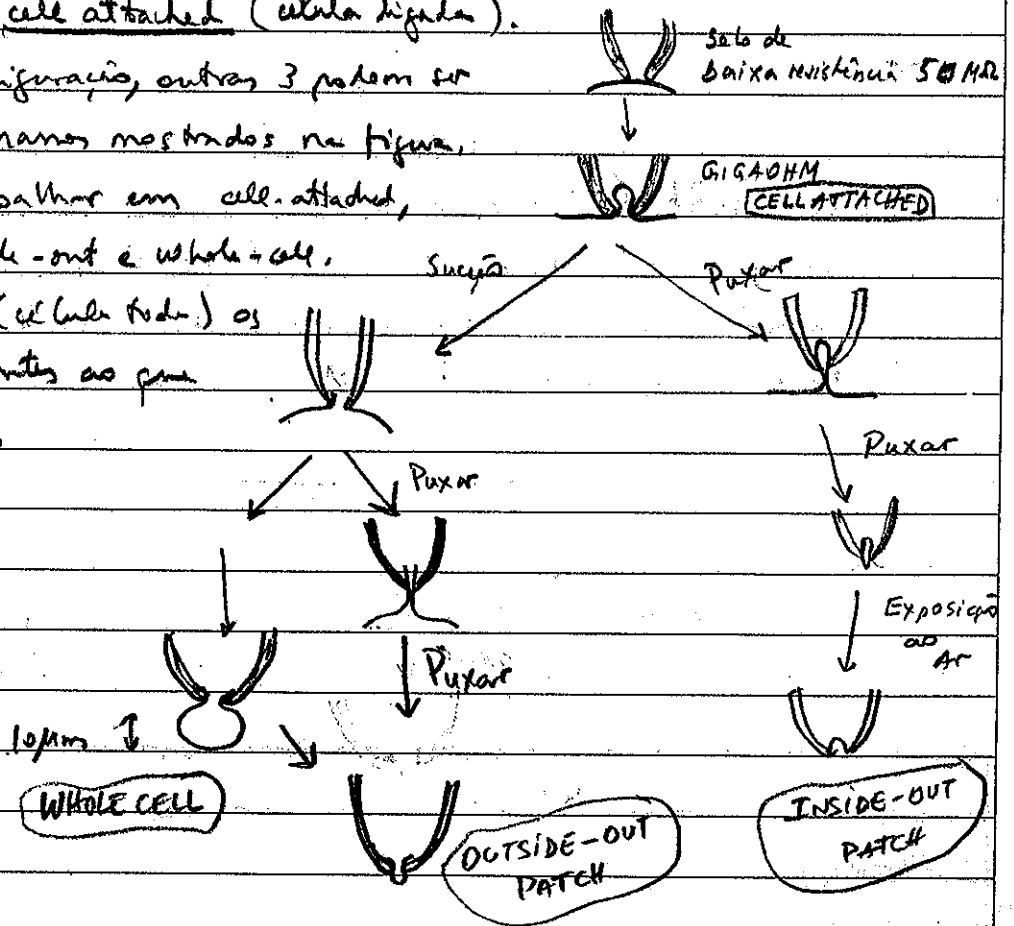 cell attached (célula ligada).
iguração, outras 3 podem ser
namos mostrados na figura,
balhar em cell-attached,
de-out e whole-cell.
(célula toda) os
ntes ao que
selo de
baixa resistência 50 MΩ
GIGAOHM
CELL ATTACHED
Sucção
Puxar
Puxar
Puxar
Exposição
ao
Ar
Puxar
10µm
WHOLE CELL
OUTSIDE-OUT
PATCH
INSIDE-OUT
PATCH